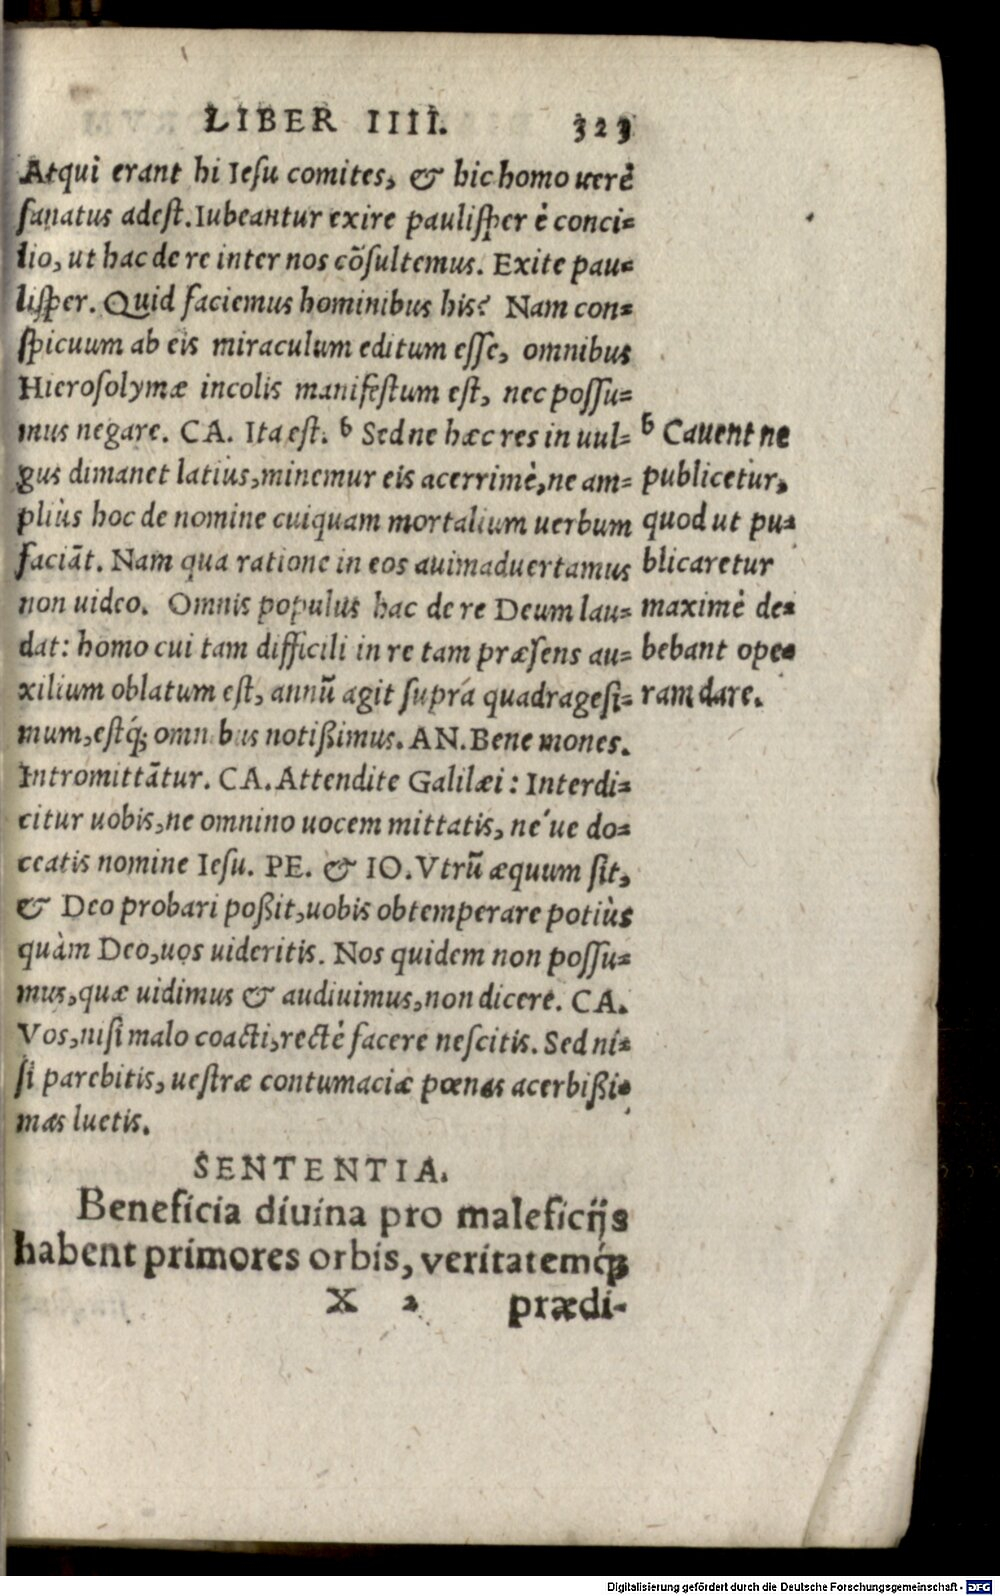 LIBER IIII. 323
Atqui erant hi Iesu comites, & hic homo uerè
sanatus adest. Iubeantur exire paulisper è conci=
lio, ut hac de re inter nos cõsultemus. Exite pau=
lisper. Quid faciemus hominibus his? Nam con=
spicuum ab eis miraculum editum esse, omnibus
Hierosolymæ incolis manifestum est, nec possu=
mus negare. CA. Ita est. b Sed ne hæc res in uul=
gus dimanet latiùs, minemur eis acerrimè, ne am=
pliùs hoc de nomine cuiquam mortalium uerbum
faciãt. Nam qua ratione in eos auimaduertamus
non uideo. Omnis populus hac de re Deum lau=
dat: homo cui tam difficili in re tam præsens au=
xilium oblatum est, annũ agit supra quadragesi=
mum, estq́; omnibus notißimus. AN. Bene mones.
Intromittãtur. CA. Attendite Galilæi: Interdi=
citur uobis, ne omnino uocem mittatis, ne´ue do=
ceatis nomine Iesu. PE. & IO. Vtrũ æquum sit,
& Deo probari poßit, uobis obtemperare potiùs
quàm Deo, uos uideritis. Nos quidem non possu=
mus, quæ uidimus & audiuimus, non dicere. CA.
Vos, nisi malo coacti, rectè facere nescitis. Sed ni=
si parebitis, uestræ contumaciæ pœnas acerbißi=
mas luetis.
b Cauent ne
publicetur,
quod ut pu=
blicaretur
maximè de=
bebant ope=
ram dare.
SENTENTIA.
Beneficia diuina pro maleficijs
habent primores orbis, veritatemq́;
X 2 prædi-
Digitalisierung gefördert durch die Deutsche Forschungsgemeinschaft - DFG